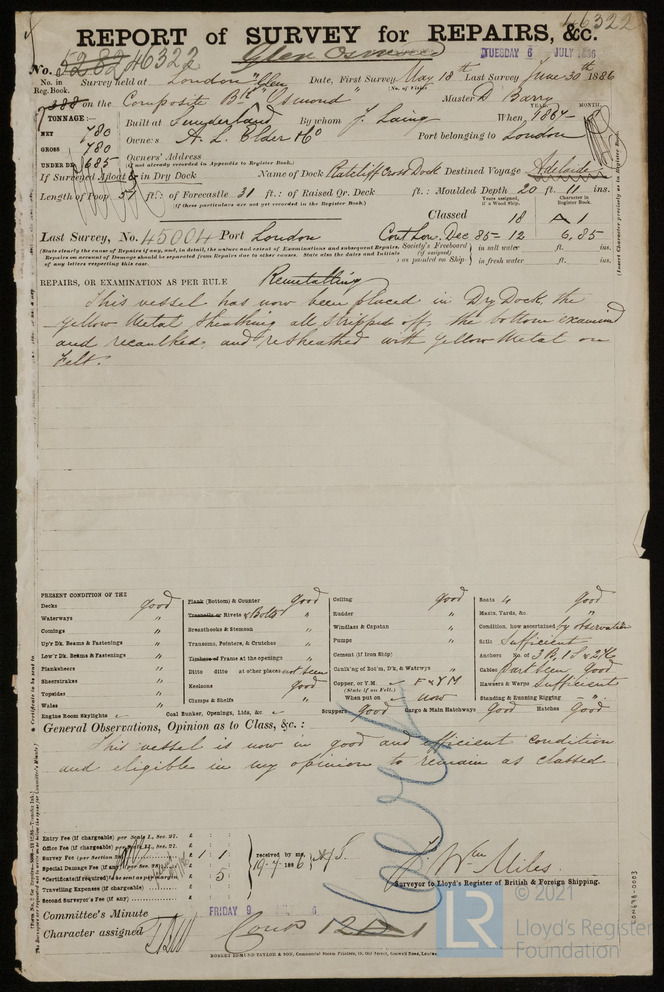 46322
REPORT of SURVEY for REPAIRS, &c.
No. 5282 46322 Glen Osmond TUESDAY 6 JULY 1886
No. in Reg. Book. Survey held at London Date, First Survey May 18th Last Survey June 30th 1886
(No. of Visits)
388 on the Composite Bk "Glen Osmond" Master D. Barry
TONNAGE:— YEAR. MONTH.
NET 780 Built at Sunderland By whom J. Laing When 1867
GROSS 780 Owners A. L. Elder & Co Port belonging to London
UNDER DK 685 Owners' Address
(If not already recorded in Appendix to Register Book.)
If Surveyed Afloat & in Dry Dock Name of Dock Ratcliff Cross Dock Destined Voyage Adelaide
Length of Poop 57 ft.: of Forecastle 31 ft.: of Raised Qr. Deck ft.: Moulded Depth 20 ft. 11 ins.
(If these particulars are not yet recorded in the Register Book.)
Years assigned, if a Wood Ship. Character in Register Book.
Classed 18 A 1
Last Survey, No. 45004 Port London Cont Lon. Dec 85-12 6,85
(State clearly the cause of Repairs if any, and, in detail, the nature and extent of Examinations and subsequent Repairs.
Repairs on account of Damage should be separated from Repairs due to other causes. State also the dates and Initials
of any letters respecting this case.
Society's Freeboard (if assigned) as painted on Ship in salt water ft. ins.
in fresh water ft. ins.
(Insert Character precisely as in Register Book.)
REPAIRS, OR EXAMINATION AS PER RULE Remetalling
This vessel has now been placed in Dry Dock, the
yellow Metal sheathing all stripped off, the bottom examined
and recaulked, and resheathed with yellow Metal on
Felt.
PRESENT CONDITION OF THE
Decks good
Waterways "
Comings "
Up'r Dk. Beams & Fastenings "
Low'r Dk. Beams & Fastenings "
Planksheers "
Sheerstrakes "
Topsides "
Wales "
Engine Room Skylights
Plank (Bottom) & Counter good
Treenails or Rivets & Bolts "
Breasthooks & Stemson "
Transoms, Pointers, & Crutches "
Timbers of Frame at the openings "
Ditto ditto at other places not seen
Keelsons good
Clamps & Shelfs "
Coal Bunker, Openings, Lids, &c.
Ceiling good
Rudder "
Windlass & Capstan "
Pumps "
Cement (if Iron Ship)
Caulk'ng of Bot'm, D'k, & Watrwys "
Copper, or Y.M. F & YM
(State if on Felt.)
When put on now
Scuppers good Cargo & Main Hatchways Good Hatches Good
Boats 4 good
Masts, Yards, &c. "
Condition, how ascertained by observation
Sails Sufficient
Anchors No. of 3 B, 1 S, & 2 K
Cables part seen Good
Hawsers & Warps Sufficient
Standing & Running Rigging "
General Observations, Opinion as to Class, &c.:
This vessel is now in good and efficient condition
and eligible in my opinion to remain as classed
Entry Fee (if chargeable) per Scale I., Sec. 27. £ : :
Office Fee (if chargeable) per Scale II., Sec. 27. £ : :
Survey Fee (per Section £ 1 : 1
Special Damage Fee (if any) £ : :
*Certificate (if required) £ : 5
Travelling Expenses (if chargeable)
Second Surveyor's Fee (if any)
received by me, 19-7-1886
Wm Miles
Surveyor to Lloyd's Register of British & Foreign Shipping.
Committee's Minute FRIDAY 9
Character assigned
ROBERT EDMUND TAYLOR & SON, Commercial Steam Printers, 19, Old Street, Goswell Road, London
LON698-0003
© 2021
LR
Lloyd's Register
Foundation